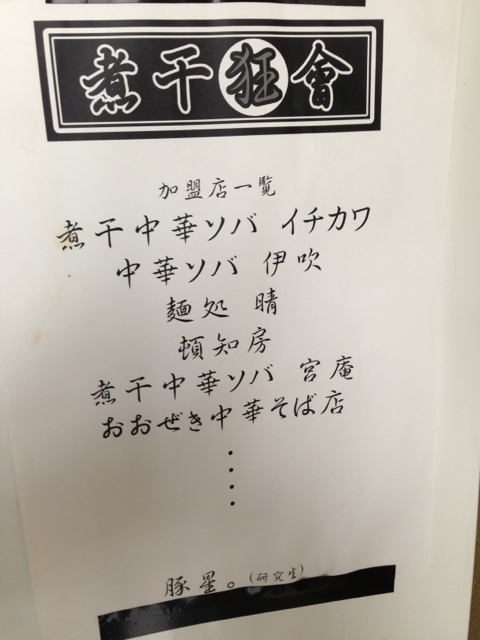 煮干狂會
加盟店一覧
煮干中華ソバ イチカワ
中華ソバ 伊吹
麺処 晴
頓知房
煮干中華ソバ 宮庵
おおぜき中華そば店
・・・・
豚星。(研究生)